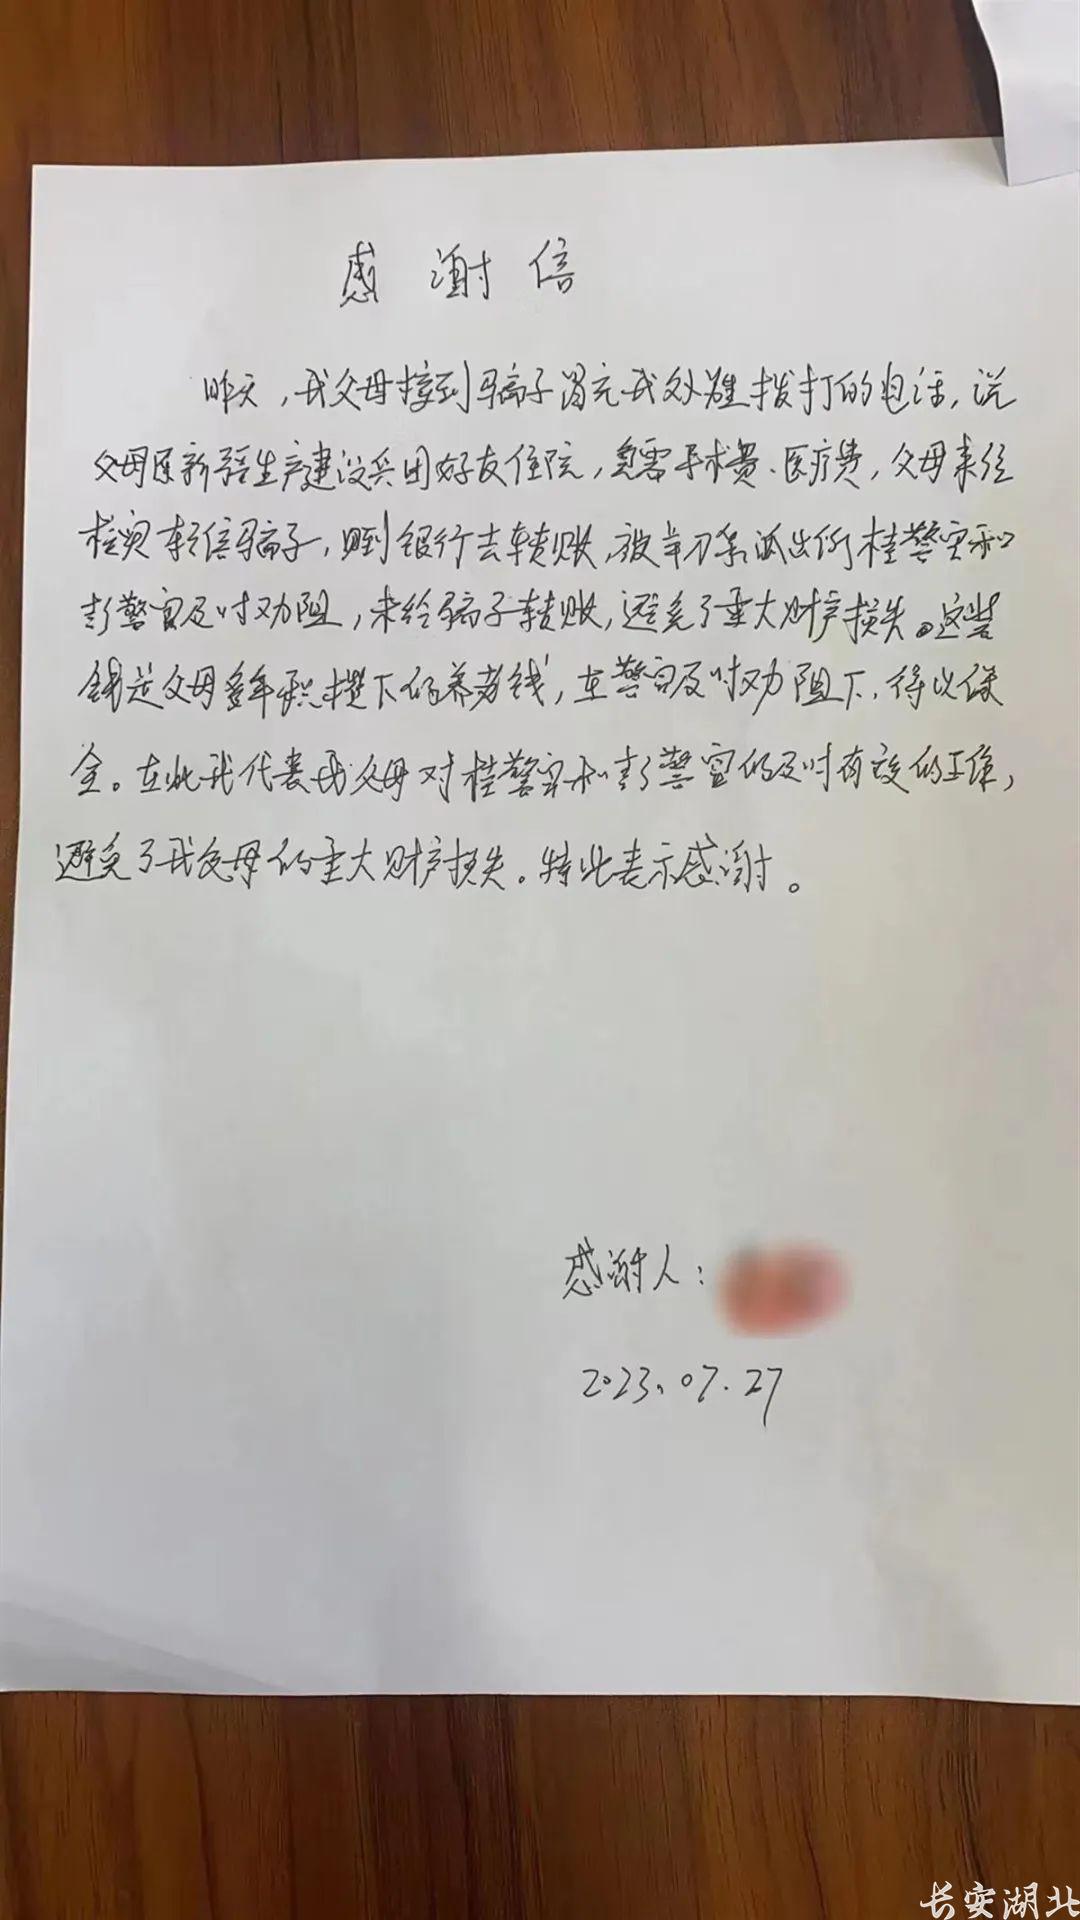 感谢信
昨天，我父母接到骗子冒充我处难拨打的电话，说
父母医新疆生产建设兵团好友住院，急需手术费、医疗费，父母未经
核实轻信骗子，即到银行去转账，被派出所桂警官和
彭警官及时劝阻，未给骗子转账，避免了重大财产损失。这些
钱是父母多年积攒下的养老钱，在警官及时劝阻下，得以保
全。在此我代表我父母对桂警官和彭警官的及时有效的工作，
避免了我父母的重大财产损失。特此表示感谢。
感谢人：
2023.07.27
长安湖北